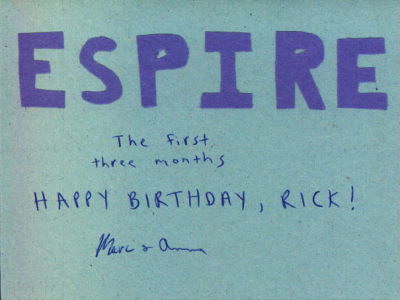 ESPIRE
The first
three months
HAPPY BIRTHDAY, RICK!
Marc & Anna